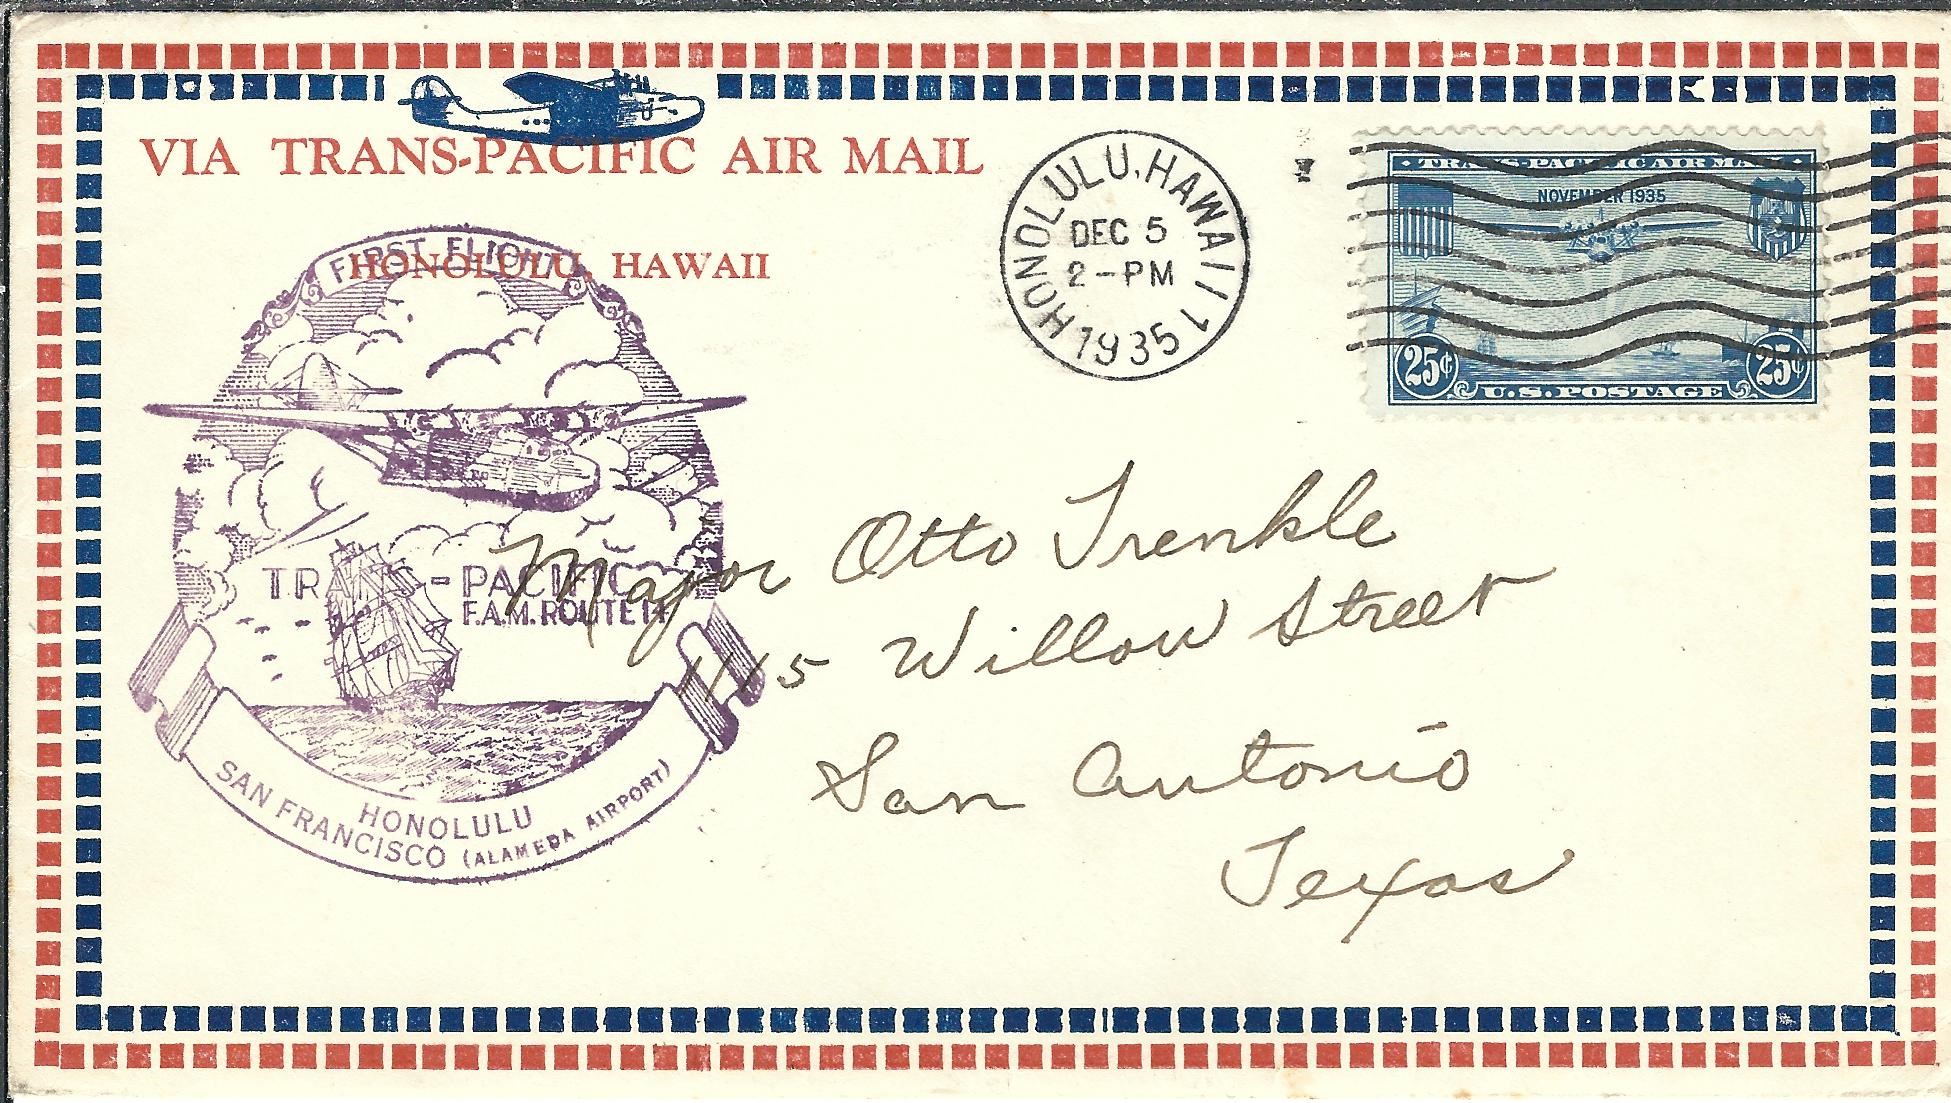 VIA TRANS-PACIFIC AIR MAIL
HONOLULU, HAWAII
FIRST FLIGHT
TRANS-PACIFIC
F.A.M. ROUTE 14
HONOLULU
SAN FRANCISCO (ALAMEDA AIRPORT)
HONOLULU, HAWAII 1
DEC 5
2-PM
1935
TRANS-PACIFIC AIR MAIL
NOVEMBER 1935
25¢ 25¢
U.S. POSTAGE
Major Otto Trenkle
1115 Willow Street
San Antonio
Texas